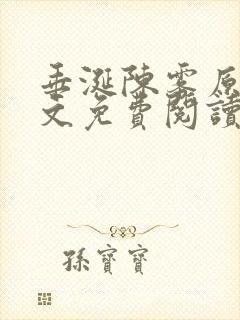 垂涎陳雾原
文免費閱讀
孫寶寶